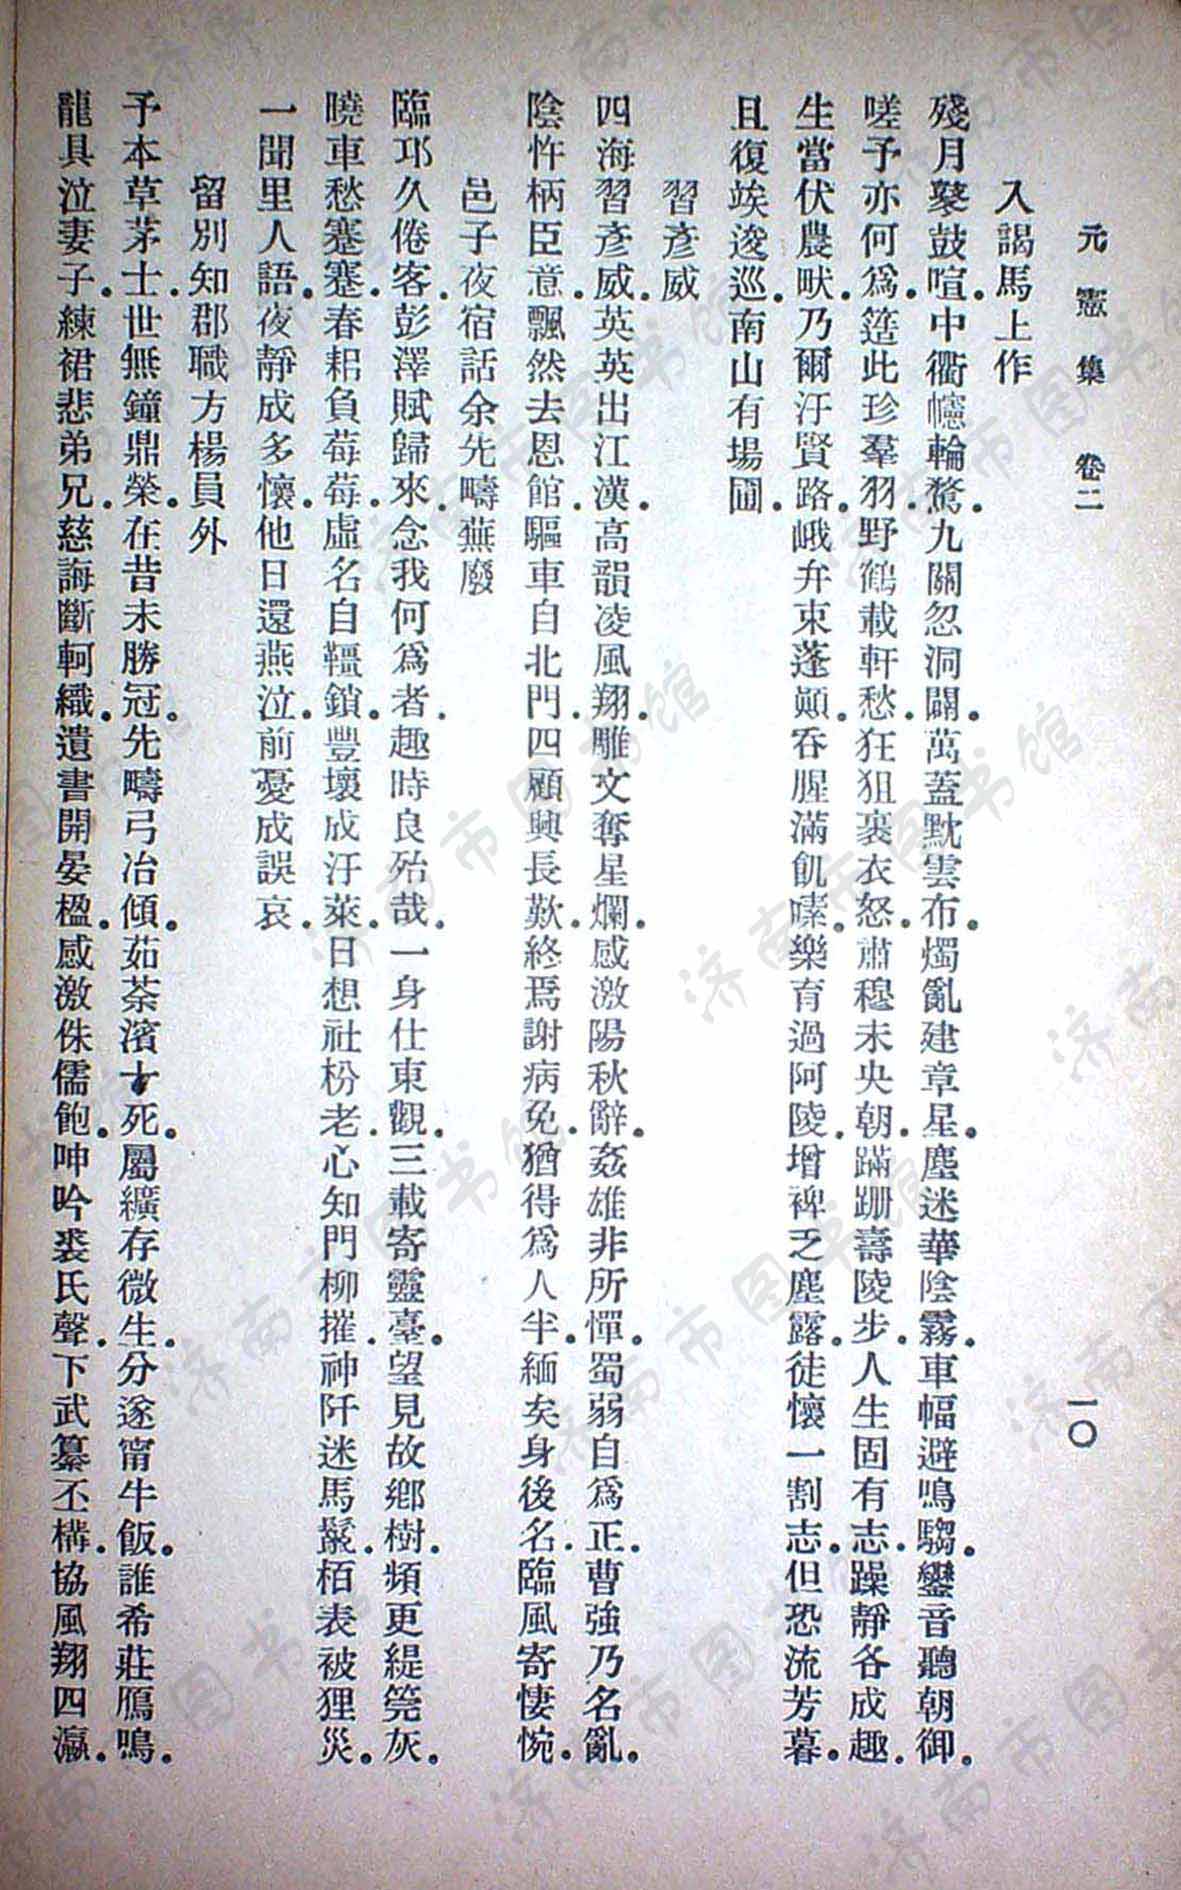 元憲集　卷二　一〇
入謁馬上作
殘月鼕鼓喧中衢幰輪騖。九關忽洞闢。萬蓋默雲布。燭亂建章星。塵迷華陰霧。車幅避鳴騶。鑾音聽朝御。
嗟予亦何爲。簉此珍羣羽。野鶴載軒愁。狂狙裹衣怒。肅穆未央朝。蹣跚壽陵步。人生固有志。躁靜各成趣。
生當伏農畎。乃爾汙賢路。峨弁束蓬顚。吞腥滿飢嗉。樂育過阿陵。增裨乏塵露。徒懷一割志。但恐流芳暮。
且復竢逡巡。南山有場圃。
習彥威
四海習彥威。英英出江漢。高韻凌風翔。雕文奪星爛。感激陽秋辭。姦雄非所憚。蜀弱自爲正。曹強乃名亂。
陰忤柄臣意。飄然去恩館。驅車自北門。四顧興長歎。終焉謝病免。猶得爲人半。緬矣身後名。臨風寄悽惋。
邑子夜宿話余先疇蕪廢
臨邛久倦客。彭澤賦歸來。念我何爲者。趣時良殆哉。一身仕東觀。三載寄靈臺。望見故鄉樹。頻更緹筦灰。
曉車愁蹇蹇。春耜負莓莓。虛名自韁鎖。豐壤成汙萊。日想社枌老。心知門柳摧。神阡迷馬鬣。栢表被狸災。
一聞里人語。夜靜成多懷。他日還燕泣。前憂成誤哀。
留別知郡職方楊員外
予本草茅士。世無鐘鼎榮。在昔未勝冠。先疇弓冶傾。茹荼濱十死。屬纊存微生。分遂甯牛飯。誰希莊鴈鳴。
龍具泣妻子。練裙悲弟兄。慈誨斷軻織。遺書開晏楹。感激侏儒飽。呻吟裘氏聲。下武纂丕構。協風翔四瀛。